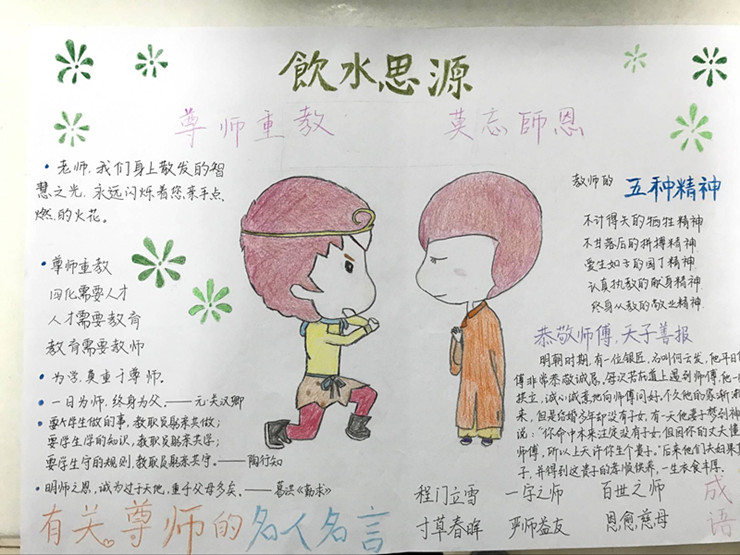 飲水思源
尊师重教 莫忘師恩
• 老师,我们身上散发的智
慧之光,永远闪烁着您亲手点
燃的火花。
• 尊师重教
四化需要人才
人才需要教育
教育需要教师
• 为学,莫重于尊师。
• 一日为师,终身为父。——元·关汉卿
• 要学生做的事,教职员躬亲共做;
要学生学的知识,教职员躬亲共学;
要学生守的规则,教职员躬亲共守。——陶行知
• 明师之恩,诚为过于天地,重于父母多矣。——葛洪《勤求》
有关尊师的名人名言
教师的 五种精神
不计得失的牺牲精神
不甘落后的拼搏精神
爱生如子的园丁精神
认真执教的献身精神
终身从教的敬业精神
恭敬师傅,天子善报
明朝时期,有一位银匠,名叫何云发,他平日
傅非常恭敬诚恳,每次若在道上遇到师傅,他一
拱立,诚心诚意地向师傅问好,个
来,但是结婚多年却没有子女,有一天他妻子梦到神
说:“你命中本来注定没有子女,但因你的丈夫懂
师傅,所以上天许你生个贵子。”后来他们夫妇果
子,并得到这贵子的孝顺供养,一生衣食丰厚。
程门立雪 一字之师 百世之师 成
寸草春晖 严师益友 恩愈慈母 语